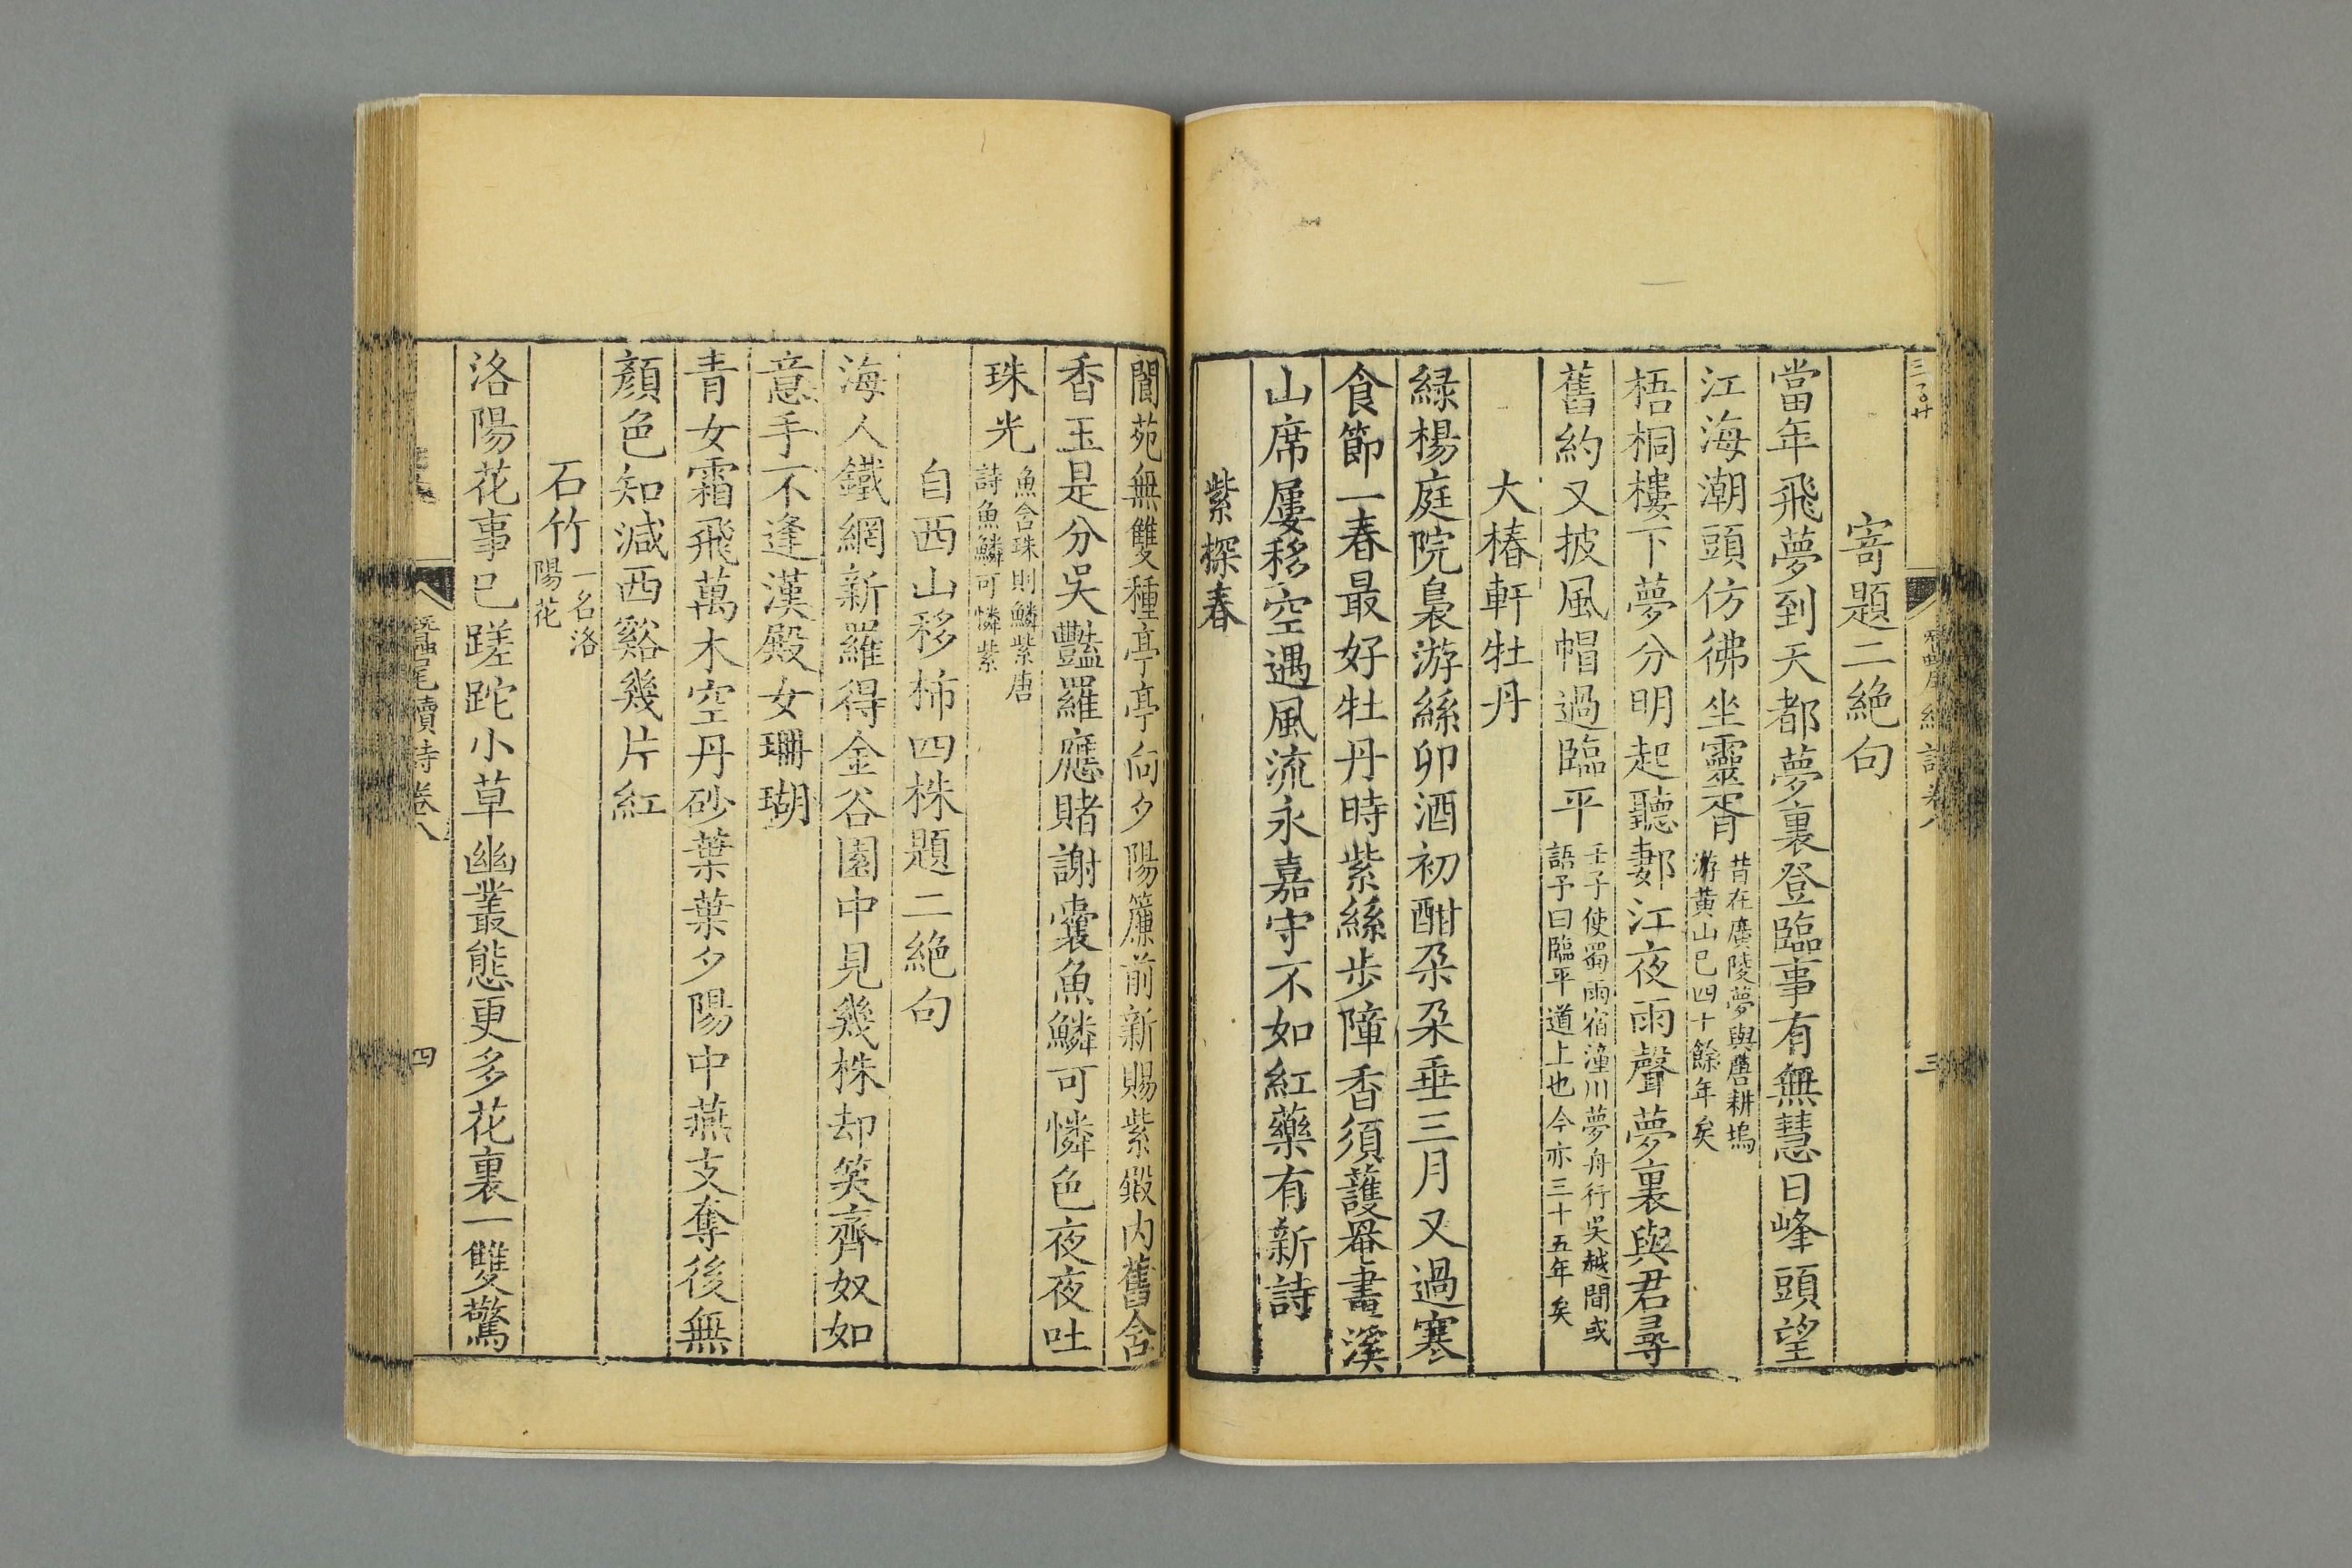 寄題二絶句
當年飛夢到天都夢裏登臨事有無慧日峰頭望
江海潮頭仿彿坐靈胥昔在廣陵夢與舊耕塢
游黃山已四十餘年矣
梧桐樓下夢分明起聽郪江夜雨聲夢裏與君尋
舊約又披風帽過臨平壬子使蜀雨宿潼川夢舟行吳越間或
語予曰臨平道上也今亦三十五年矣
大椿軒牡丹
緑楊庭院裊游絲卯酒初酣朶朶垂三月又過寒
食節一春最好牡丹時紫絲步障香須護罨畫溪
山席屢移空遇風流永嘉守不如紅藥有新詩
紫探春
閬苑無雙種亭亭向夕陽簾前新賜紫鍛内舊含
香玉是分吳豔羅應賭謝囊魚鱗可憐色夜夜吐
珠光魚含珠則鱗紫唐
詩魚鱗可憐紫
自西山移柿四株題二絶句
海人鐵網新羅得金谷園中見幾株却笑齊奴如
意手不逢漢殿女珊瑚
青女霜飛萬木空丹砂葉葉夕陽中燕支奪後無
顏色知減西谿幾片紅
石竹一名洛
陽花
洛陽花事已蹉跎小草幽叢態更多花裏一雙驚
蠶尾續詩卷八
四